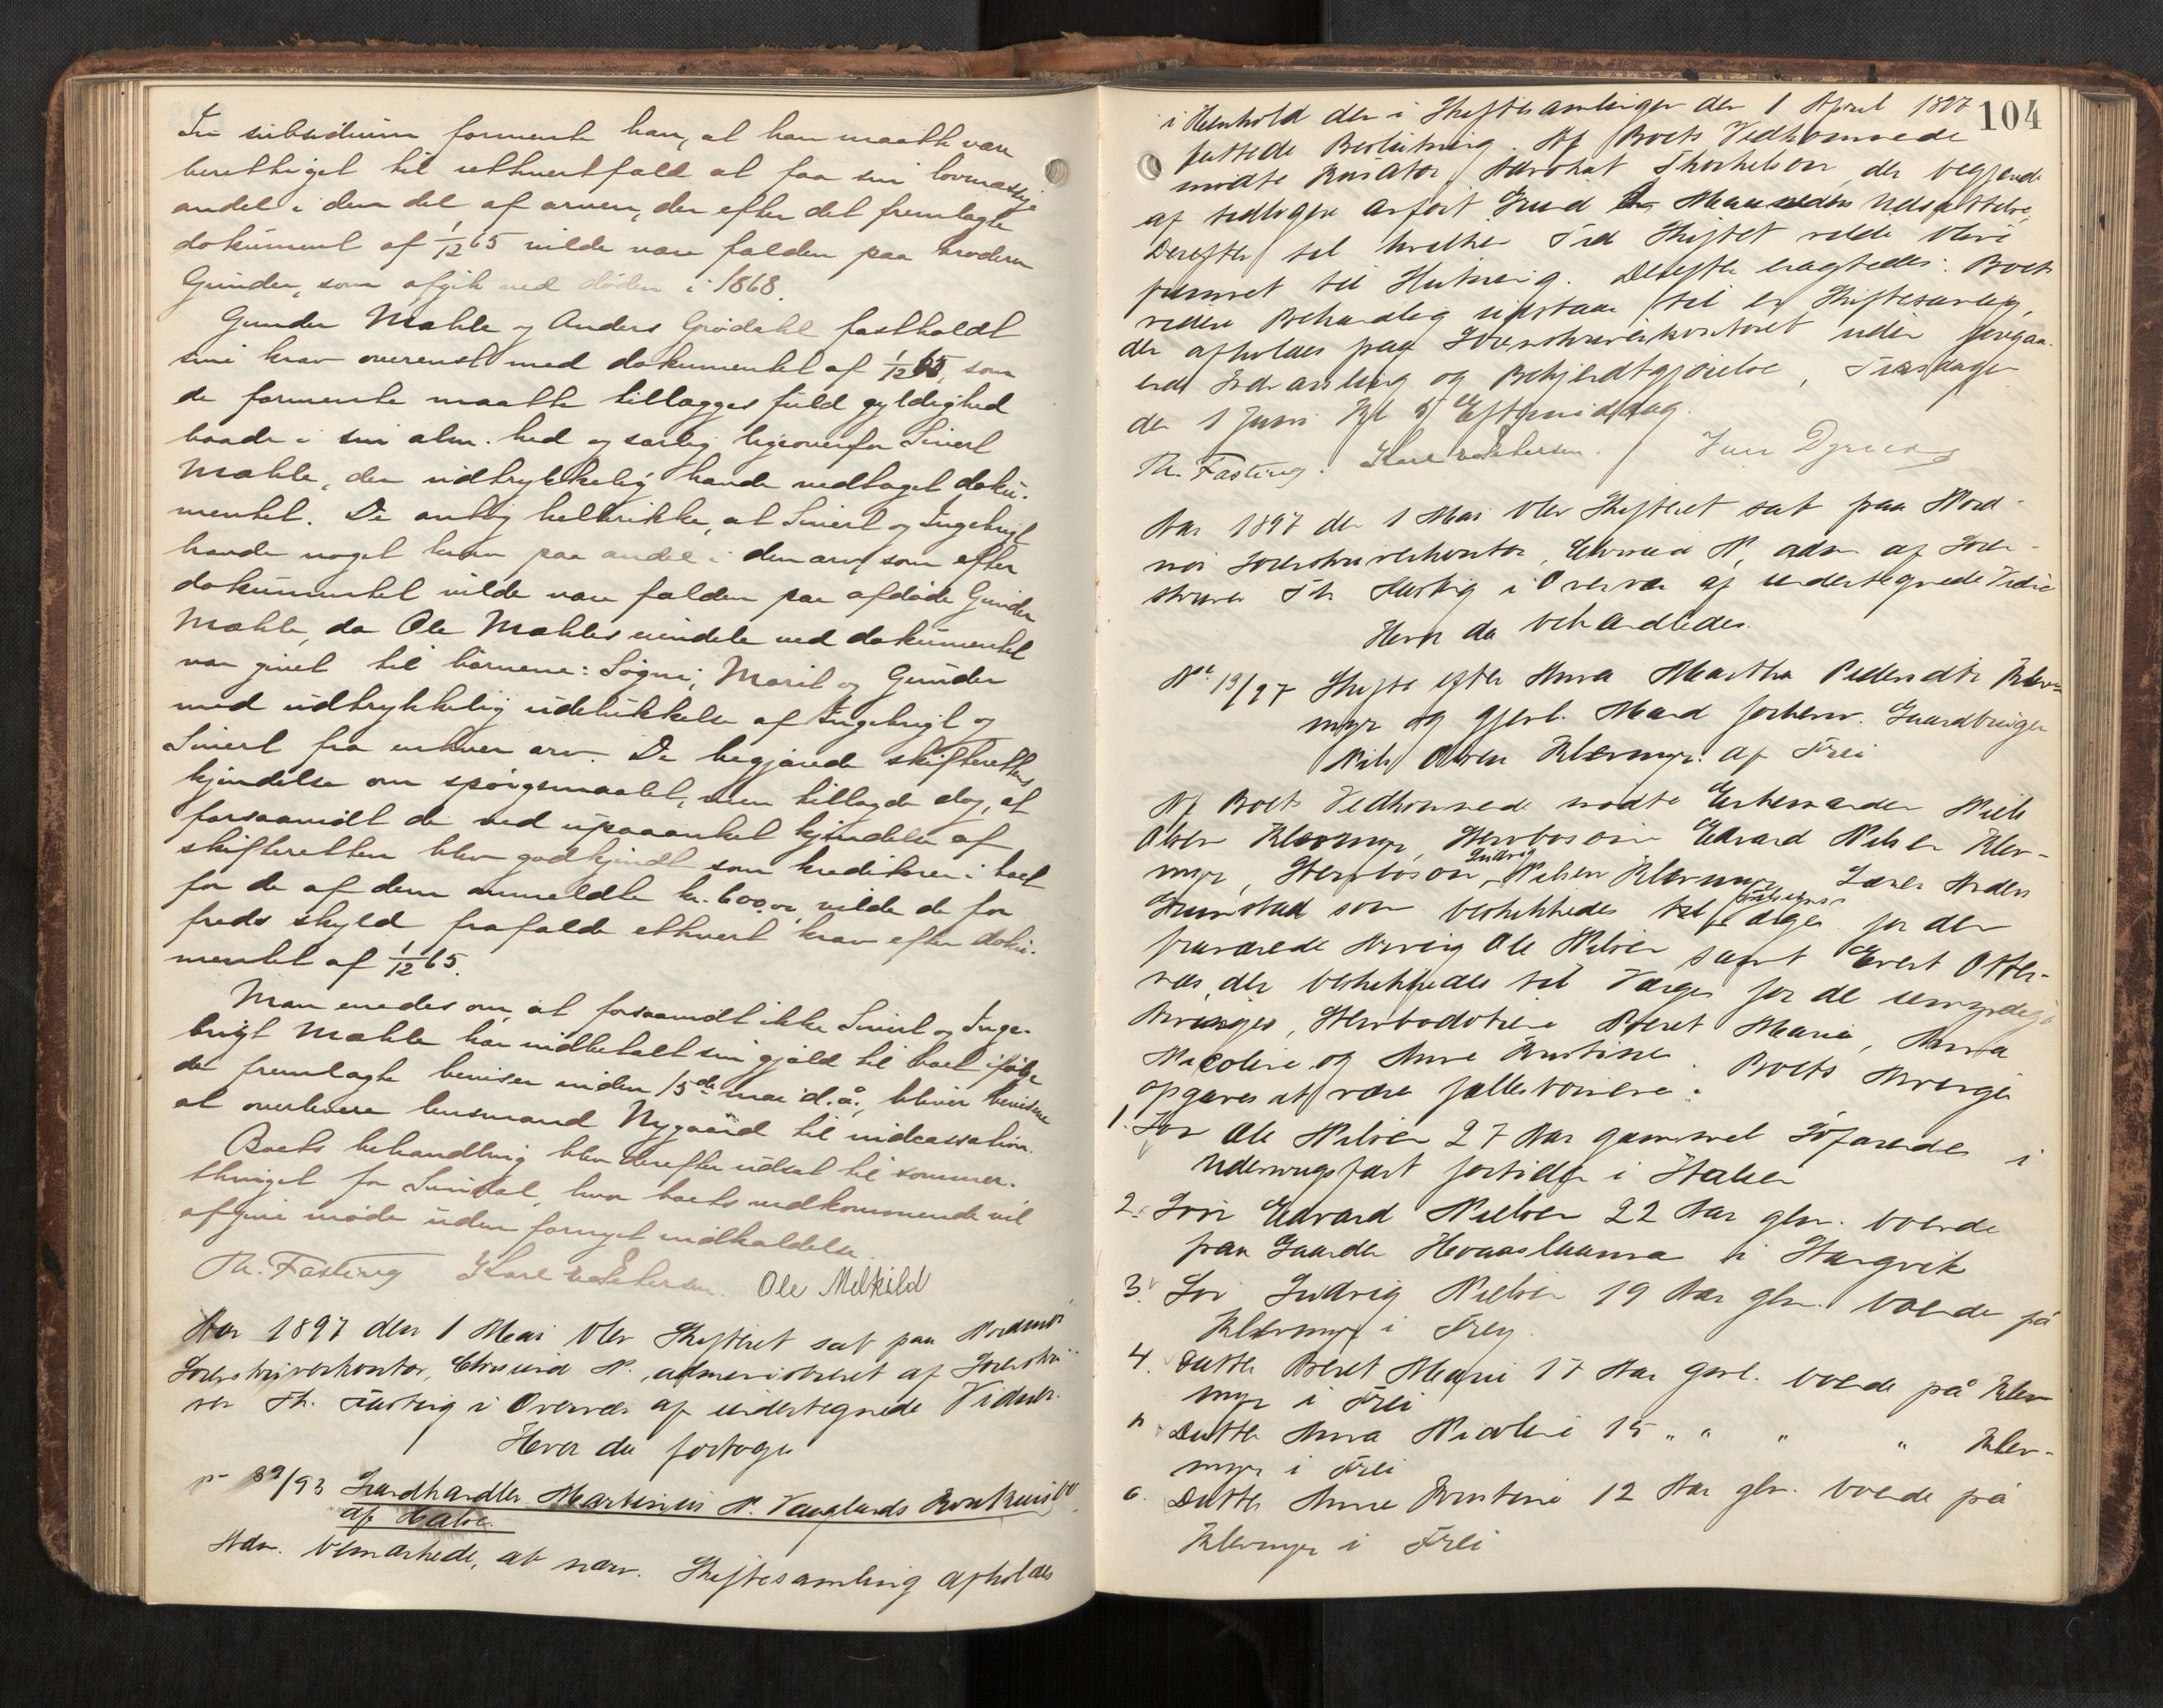 In subsidium formente han, at han maatte være
berettiget til ethvertfald at faa sin lovmæssige
andel i den del af arven, der efter det fremlagte
dokument af 1/12 65 vilde være falden paa broderen
Gunder, som afgik ved døden i 1868.
Gunder Mæhle og Anders Grødahl fastholdt
sine krav overenst med dokumentet af 1/12 65, som
de formente maatte tillægges fuld gyldighed
baade i sin alm.hed og særlig ligeoverfor Sivert
Mæhle, der udtrykkelig havde vedtaget doku-
mentet. De antog hellerikke, at Sivert og Ingebrigt
havde noget krav paa andel i den arv, som efter
dokumentet vilde være falden paa afdøde Gunder
Mæhle, da Ole Mæhles eiendele ved dokumentet
var givet til børnene: Signi, Marit og Gunder
med udtrykkelig udelukkelse af Ingebrigt og
Sivert fra enhver arv. De begjærede skifterettens
kjendelse om spørgsmaalet, men tillagde dog, at
forsaavidt de ved upaaanket kjendelse af
skifteretten blev godkjendt som kreditorer i boet
for de af dem anmeldte kr. 600,00, vilde de for
freds skyld frafalde ethvert krav efter doku-
mentet af 1/12 65.
Man enedes om, at forsaavidt ikke Sivert og Inge-
brigt Mæhle har indbetalt sin gjæld til boet ifølge
de fremlagte beviser inden 15de mai d.å., bliver beviserne
at overlevere lensmand Nygaard til indcassation.
Boets behandling blev derefter udsat til sommer-
thinget for Sundal, hvor boets vedkommende vil
afgive møde uden fornyet indkaldelse.
Th. Fasting Karl Pedersen. Ole Melkild
Aar 1897 den 1 Mai blev Skifteret sat paa Nordmør
Sorenskriverkontor, Chrsund N., administreret af Sorenskri-
ver Th. Fasting i Overvær af undertegnede Vidner.
Hvor da foretoges
No 89/93 Landhandler Martinus N. Vauglands Konkursbo
af Halse.
Adm. bemærkede, at nærv. Skiftesamling afholdes
104
i Henhold den i Skiftesamlingen den 1 April 1897
fattede Beslutning. Af Boets Vedkommede
mødte Kurator, Advokat Thorkelson, der begjærede
af tidligere anført Grund Maaneders Udsættelse,
Derefter til hvilken Tid Skiftet vilde blive
fremmet til Slutning. Derefter eragtedes: Boets
videre Behandling udstaar til en Skiftesamling,
der afholdes paa Sorenskriverkontoret uden foregaa-
ende Indvarsling og Bekjendtgjørelse, Tirsdagen
den 1 Juni Kl 5 Eftermiddag.
Th. Fasting. Karl Pedersen.
Aar 1897 den 1 Mai blev Skifteret sat paa Nord-
mør Sorenskriverkontor, Chrsund N, adm. af Soren-
skriver Th Fasting i Overvær af undertegnede Vidner
Hvor da behandledes.
No 13/97 Skifte efter Anna Martha Pedersdtr Klev-
myr og gjenl. Mand forhenv. Gaardbruger
Nils Olsen Klevmyr. af Frei
Af Boets Vedkommede mødte Enkemanden Niels
Olsen Klevmyr, Stervboson Edvard Nilsen Klev-
myr, Stervboson Ludvig Nilsen Klevmyr, Lærer Anders
Grimstad som beskikkedes til Tilsynsværge for den
fraværede Arving Ole Nilsen samt Evert Otter-
næs, der beskikkedes til Værge for de umyndige
Arvinger, Stervbodøtrene Beret Marie, Anna
Nicoline og Anne Kristine. Boets Arvinger
opgaves at være fællesbørnene:
1. Søn Ole Nilsen 27 Aar gammel Søfarende i
Udenrigsfart fortiden i
2. Søn Edvard Nielsen 22 Aar glm. boende
paa Gaarden i Stangvik
3. Søn Ludvig Nielsen 19 Aar glm. boende på
Klevmyr i Frey.
4. Datter Beret Marie 17 Aar gml. boende på Klev-
myr i Frei
" Datter Anna Nicoline 15 " " " " Klev-
myr i Frei
6. Datter Anne Kristine 12 Aar glm. boende på
Klevmyr i Frei